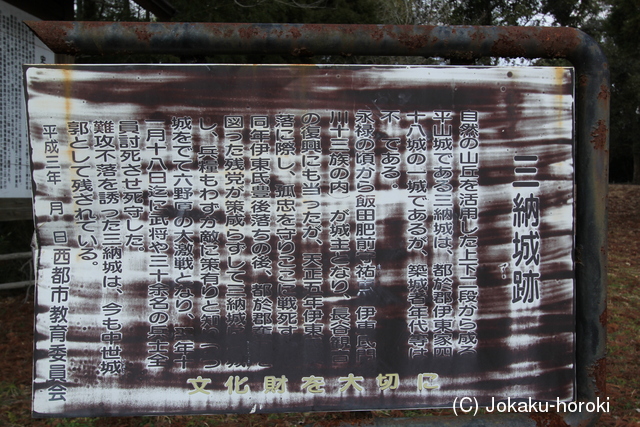 三納城跡
自然の山丘を活用した上下二段から成る
平山城である三納城は、都於郡伊東家四
十八城の一城であるが、築城者年代等は
不 である。
永禄の頃から飯田肥前 祐 、伊東
川十三族の内 が城主となり、長谷観音
の復興にも当ったが、天正五年伊東
落に際し、孤忠を守りここに戦死す
同年伊東氏豊後落ちの後、都於郡
図った残党が策成らずして三納城
し、兵糧もわずか敵に乗
城をでて六野原の大激戦となり、 年十
二月十八日迄に武将や三十余名の兵士全
員討死させ死守した。
難攻不落を誘った三納城は、今も中世城
郭として残されている。
平成三年 月 日 西都市教育委員会
文化財を大切に
(C) Jokaku-horoki